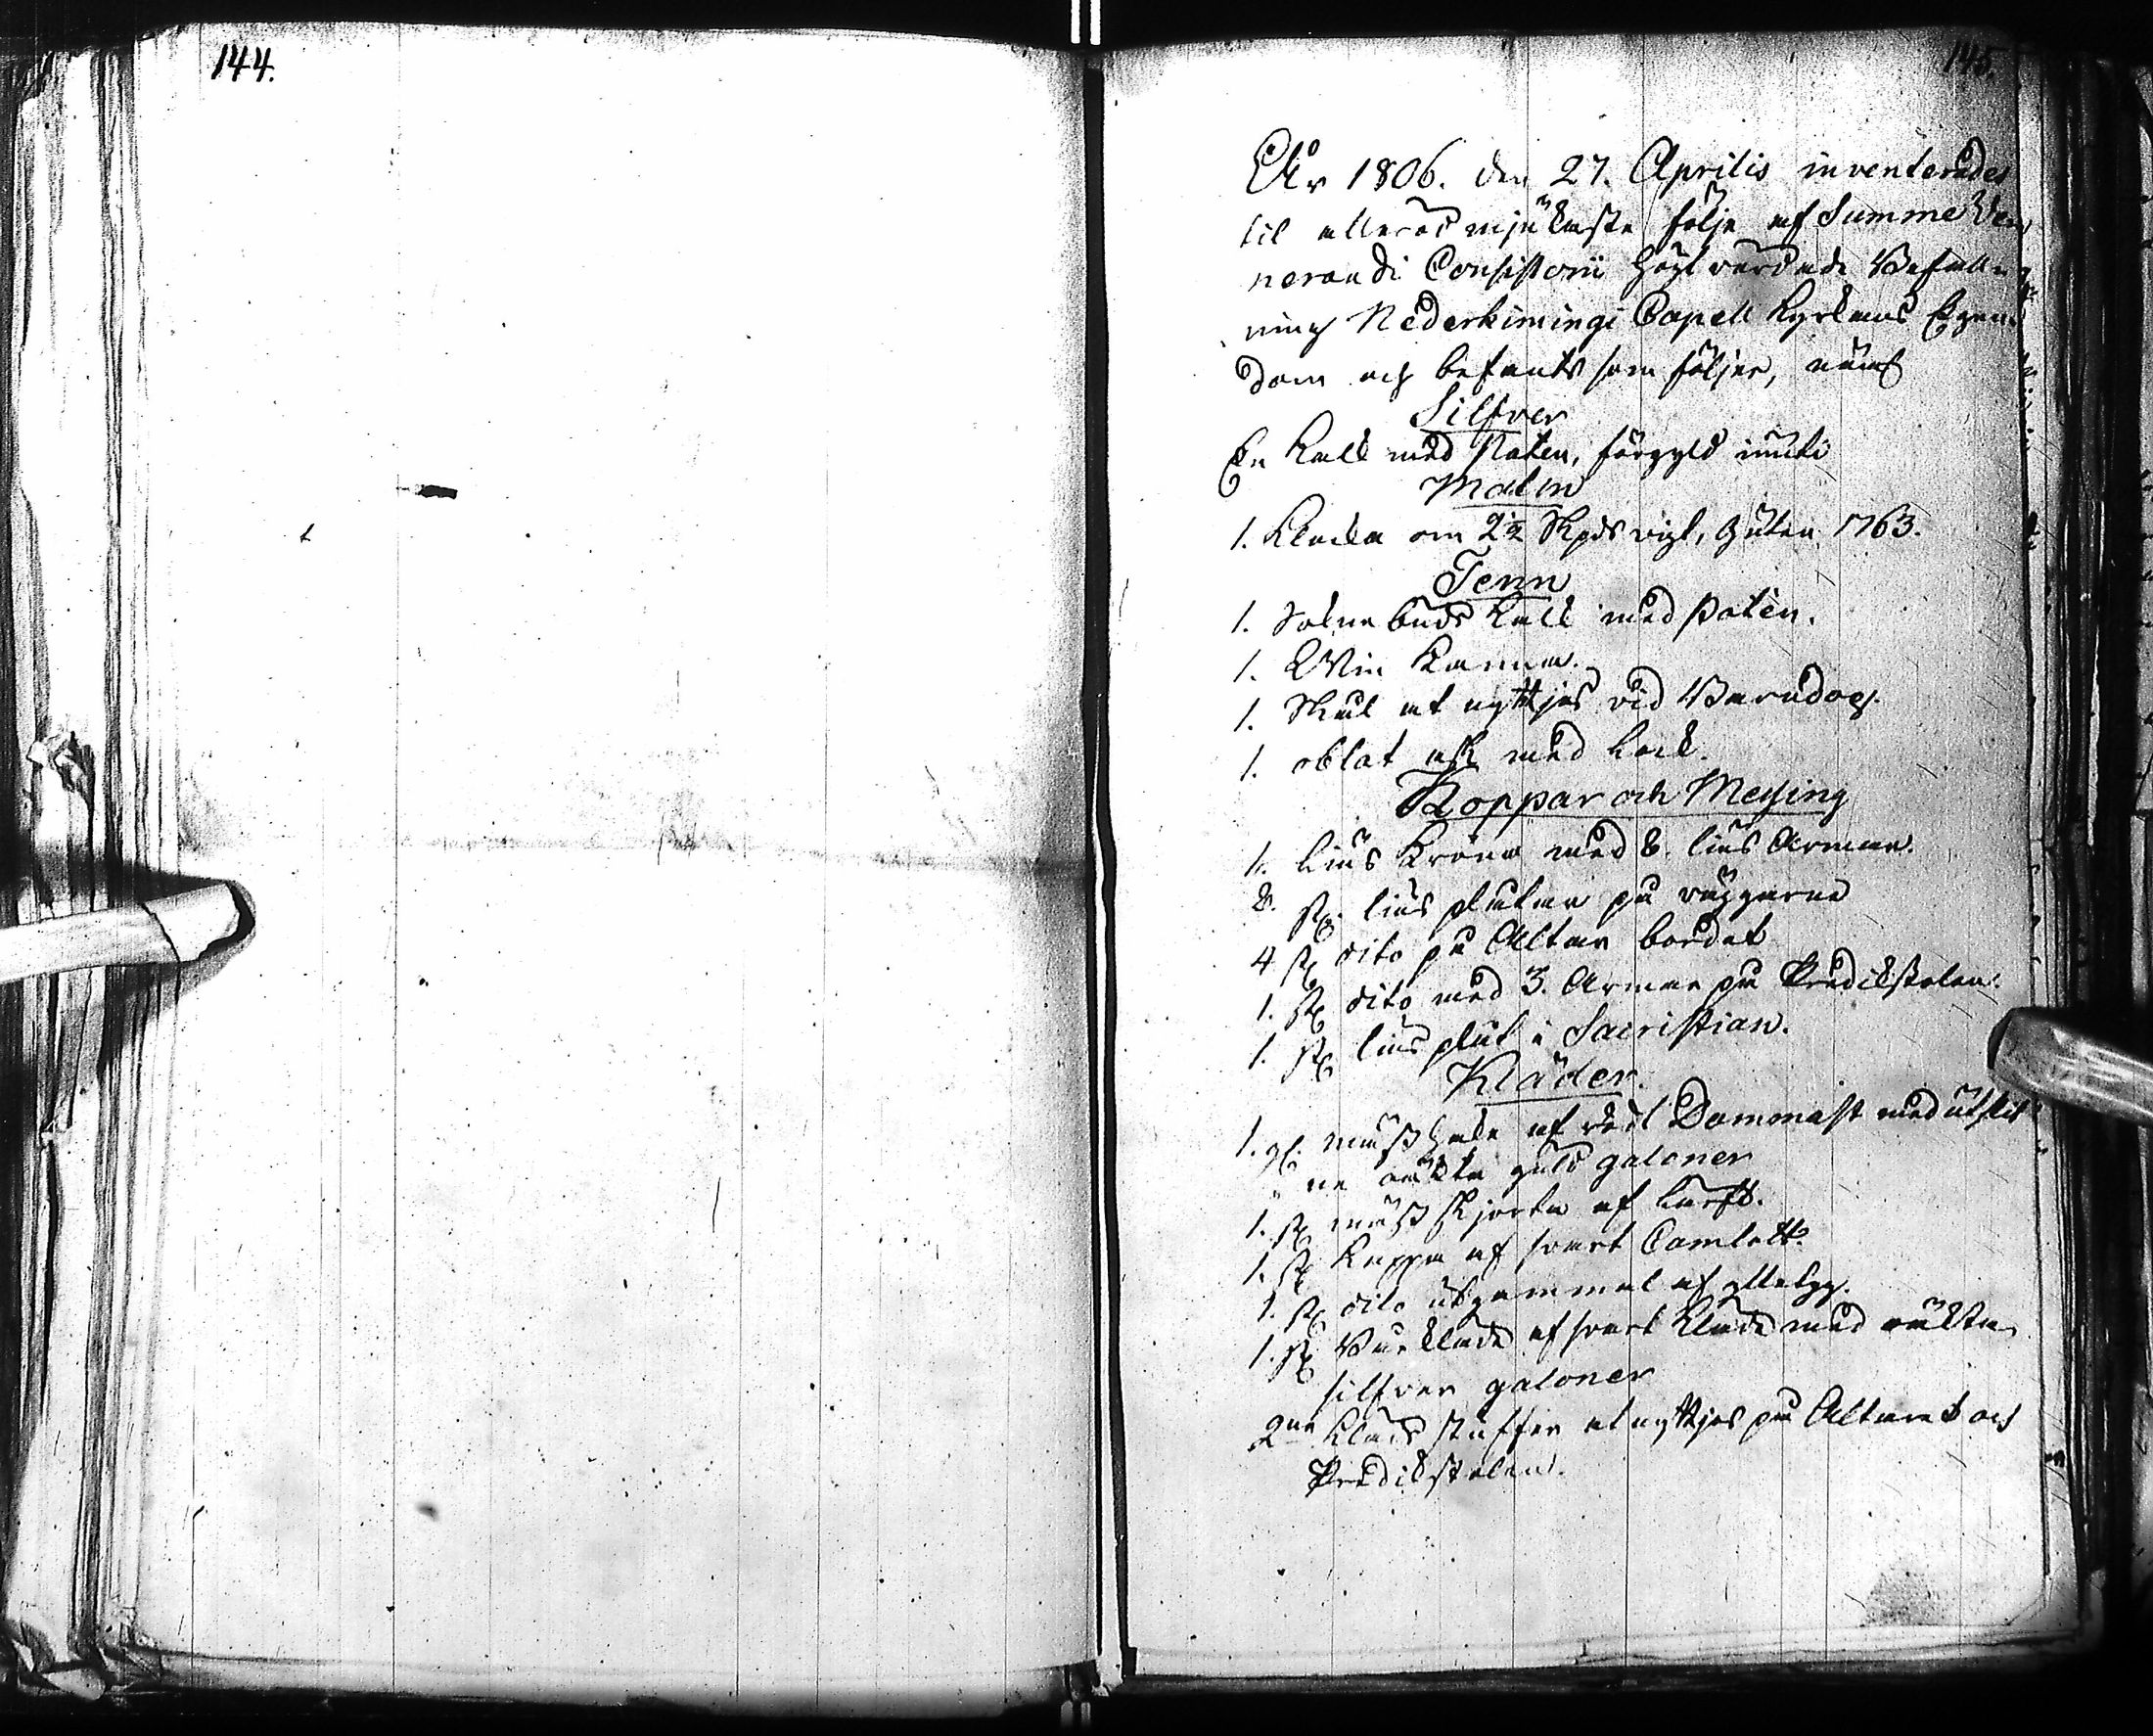 144.
145.
År 1806. den 27. Aprilis inventerades
til allerödmjukaste följe af Summe Ve
nerandi Consistorii högtvördade Befall
ning Nederkimingi Capell Kyrkans Egen
dom och befants som följer, näml
Silfver
En Kalk med Paten, förgyld inuti
Malm
1. Klocka om 2½ Skpds vigt, guten 1763.
Tenn
1. Sokne buds Kalk med Paten.
1. Win Kanna.
1. Skål at nyttjas vid Barndop.
1. oblat ask med Lock.
Koppar och Messing
1. lius Krona med 8. lius Armar.
8. st. lius plåtar på väggarne
4 st dito på Altar bordet
1. st dito med 3. Armar på Predikstolen.
1. st lius plåt i Sacristian.
Kläder.
1. st. mässhake af röd Dammast med utslit
ne oäkta guld galoner
1. st mässkjorta af Lärft.
1. st Kappa af svart Camlott.
1. st dito utgammal af
1. st Bårkläde af svart Kläde med oäkta
silfver galoner
2ne Kläds stuffar at nyttjas på Altaret och
Predikstolen.